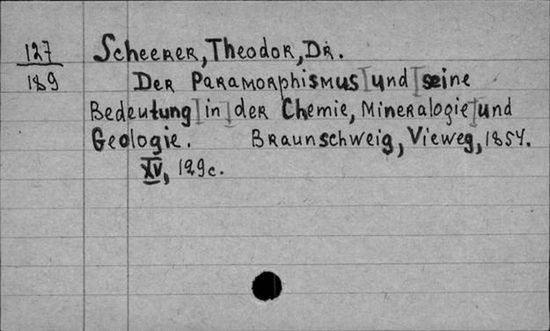 127
189
Scheerer, Theodor, Dr.
Der Paramorphismus und seine
Bedeutung in der Chemie, Mineralogie und
Geologie. Braunschweig, Vieweg, 1854.
XV, 129c.